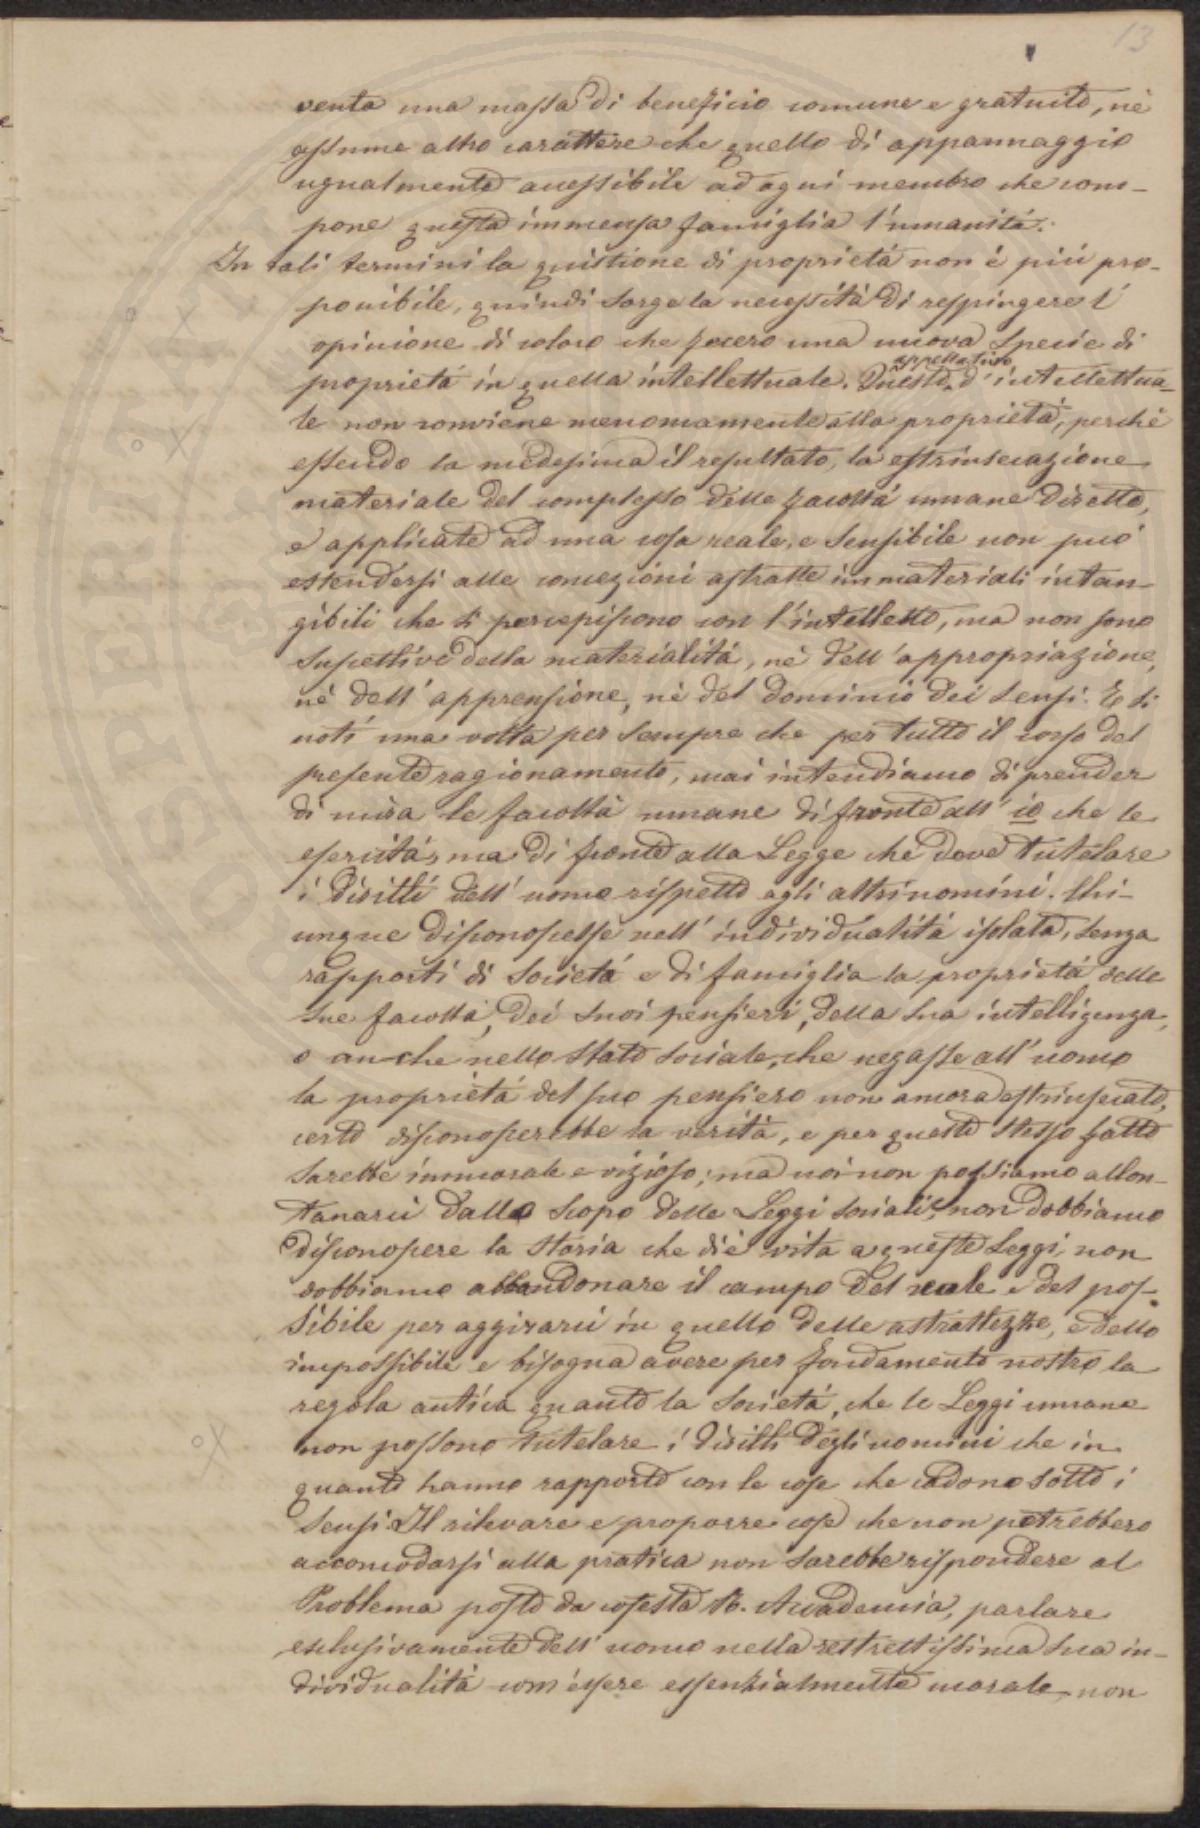 13
venta una massa di beneficio comune e gratuito, nè
assume altro carattere che quello di appannaggio
ugualmente accessibile ad ogni membro che com-
pone questa immensa famiglia l'umanità.
In tali termini la quistione di proprietà non è più pro-
ponibile, quindi sorge la necessità di respingere l'
opinione di coloro che fecero una nuova specie di
proprietà in quella intellettuale. Questo appellativo d'intellettua-
le non conviene menomamente alla proprietà, perchè
essendo la medesima il resultato, la estrinsecazione
materiale del complesso delle facoltà umane dirette,
e applicate ad una cosa reale, e sensibile non può
estendersi alle concezioni astratte immateriali intan-
gibili che si percepiscono con l'intelletto, ma non sono
suscettive della materialità, nè dell'appropriazione,
nè dell'apprensione, nè del dominio dei sensi. E si
noti una volta per sempre che per tutto il corso del
presente ragionamento, mai intendiamo di prender
di mira le facoltà umane di fronte all'io che le
esercita, ma di fronte alla Legge che deve tutelare
i diritti dell'uomo rispetto agli altri uomini. Chi-
unque disconoscesse nell'individualità isolata, senza
rapporti di società e di famiglia la proprietà delle
sue facoltà, dei suoi pensieri, della sua intelligenza,
o anche nello stato sociale, che negasse all'uomo
la proprietà del suo pensiero non ancora estrinsecato,
certo disconoscerebbe la verità, e per questo stesso fatto
sarebbe immorale e vizioso; ma noi non possiamo allon-
tanarci dallo scopo delle Leggi sociali, non dobbiamo
disconoscere la storia che diè vita a queste Leggi, non
dobbiamo abbandonare il campo del reale e del pos-
sibile per aggirarci in quello delle astrattezze, e dello
impossibile e bisogna avere per fondamento nostro la
regola antica quanto la società, che le Leggi umane
non possono tutelare i diritti degli uomini che in
quanto hanno rapporto con le cose che cadono sotto i
sensi. Il rilevare e proporre cose che non potrebbero
accomodarsi alla pratica non sarebbe rispondere al
Problema posto da cotesta R. Accademia, parlare
esclusivamente dell'uomo nella restrettissima sua in-
dividualità com'essere essenzialmente morale, non